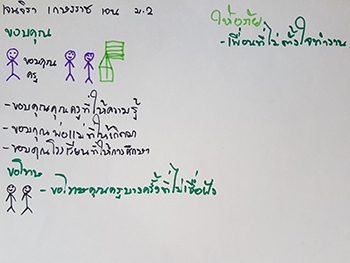 เจนจิรา เกษรราช เอน ม.2
ขอบคุณ
ขอบคุณ
ครู
-ขอบคุณคุณครูที่ให้ความรู้
-ขอบคุณพ่อแม่ที่ให้เกิดมา
-ขอบคุณโรงเรียนที่ให้การศึกษา
ขอโทษ
-ขอโทษคุณครูบางครั้งที่ไม่เชื่อฟัง
ให้อภัย
-เพื่อนที่ไม่ตั้งใจทำงาน